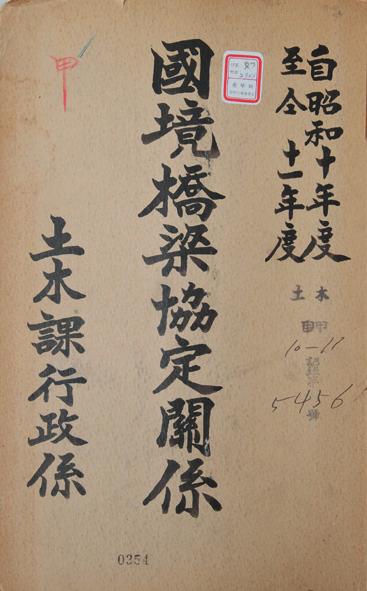 自昭和十年度
至仝十一年度
土木
甲
10-11
5456
國境橋梁協定關係
土木課行政係
甲
0354